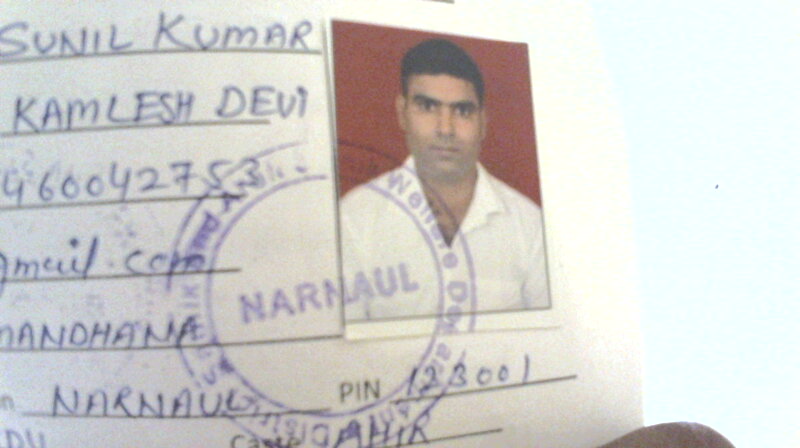 SUNIL KUMAR
KAMLESH DEVI
460042753
gmail.com
MANDHANA
NARNAUL PIN 123001
AHIR
Welfare
NARNAUL